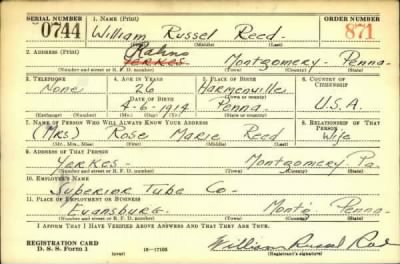 SERIAL NUMBER 1. NAME (Print) ORDER NUMBER
0744 William Russel Reed 871
(First) (Middle) (Last)
2. ADDRESS (Print)
Rahns
Yerkes Montgomery Penna.
(Number and street or R. F. D. number) (Town) (County) (State)
3. TELEPHONE 4. AGE IN YEARS 5. PLACE OF BIRTH 6. COUNTRY OF CITIZENSHIP
None 26 Harmenville
DATE OF BIRTH (Town or county)
4-6-1914 Penna. U.S.A.
(Exchange) (Number) (Mo.) (Day) (Yr.) (State or country)
7. NAME OF PERSON WHO WILL ALWAYS KNOW YOUR ADDRESS 8. RELATIONSHIP OF THAT PERSON
(Mrs) Rose Marie Reed Wife
(Mr., Mrs., Miss) (First) (Middle) (Last)
9. ADDRESS OF THAT PERSON
Yerkes- Montgomery Pa.
(Number and street or R. F. D. number) (Town) (County) (State)
10. EMPLOYER'S NAME
Superior Tube Co-
11. PLACE OF EMPLOYMENT OR BUSINESS
Evansburg- Montg Penna.
(Number and street or R. F. D. number) (Town) (County) (State)
I AFFIRM THAT I HAVE VERIFIED ABOVE ANSWERS AND THAT THEY ARE TRUE.
REGISTRATION CARD
D. S. S. Form 1 (over) 16-17105 William Russel Reed
(Registrant's signature)